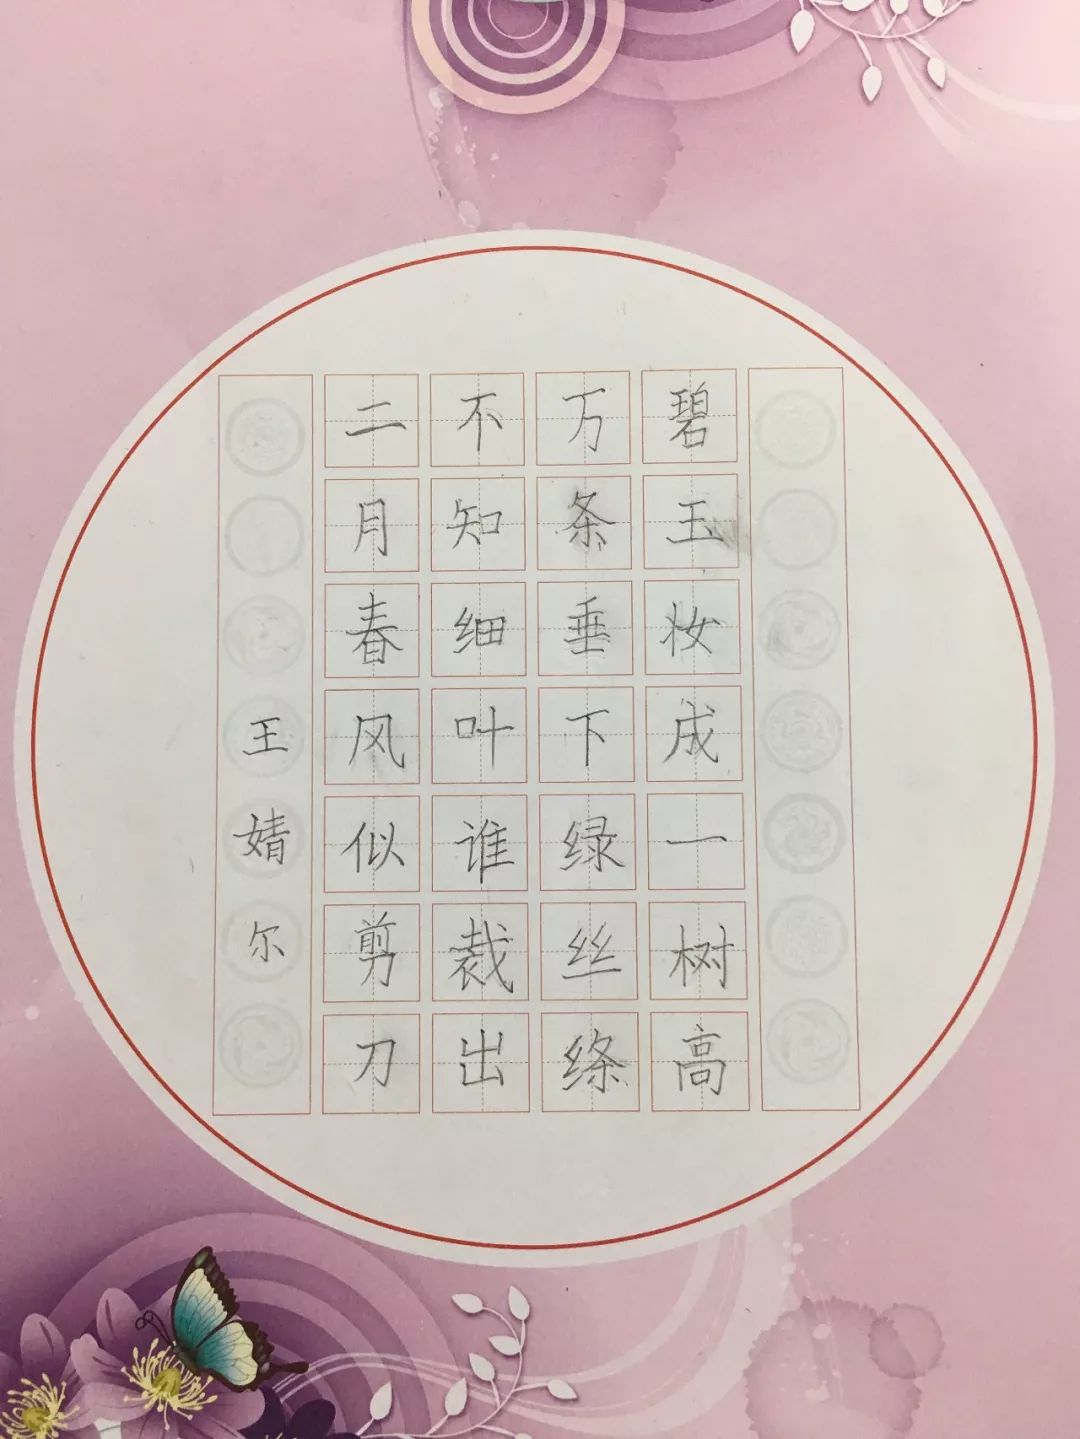 碧玉妆成一树高
万条垂下绿丝绦
不知细叶谁裁出
二月春风似剪刀
王婧尔